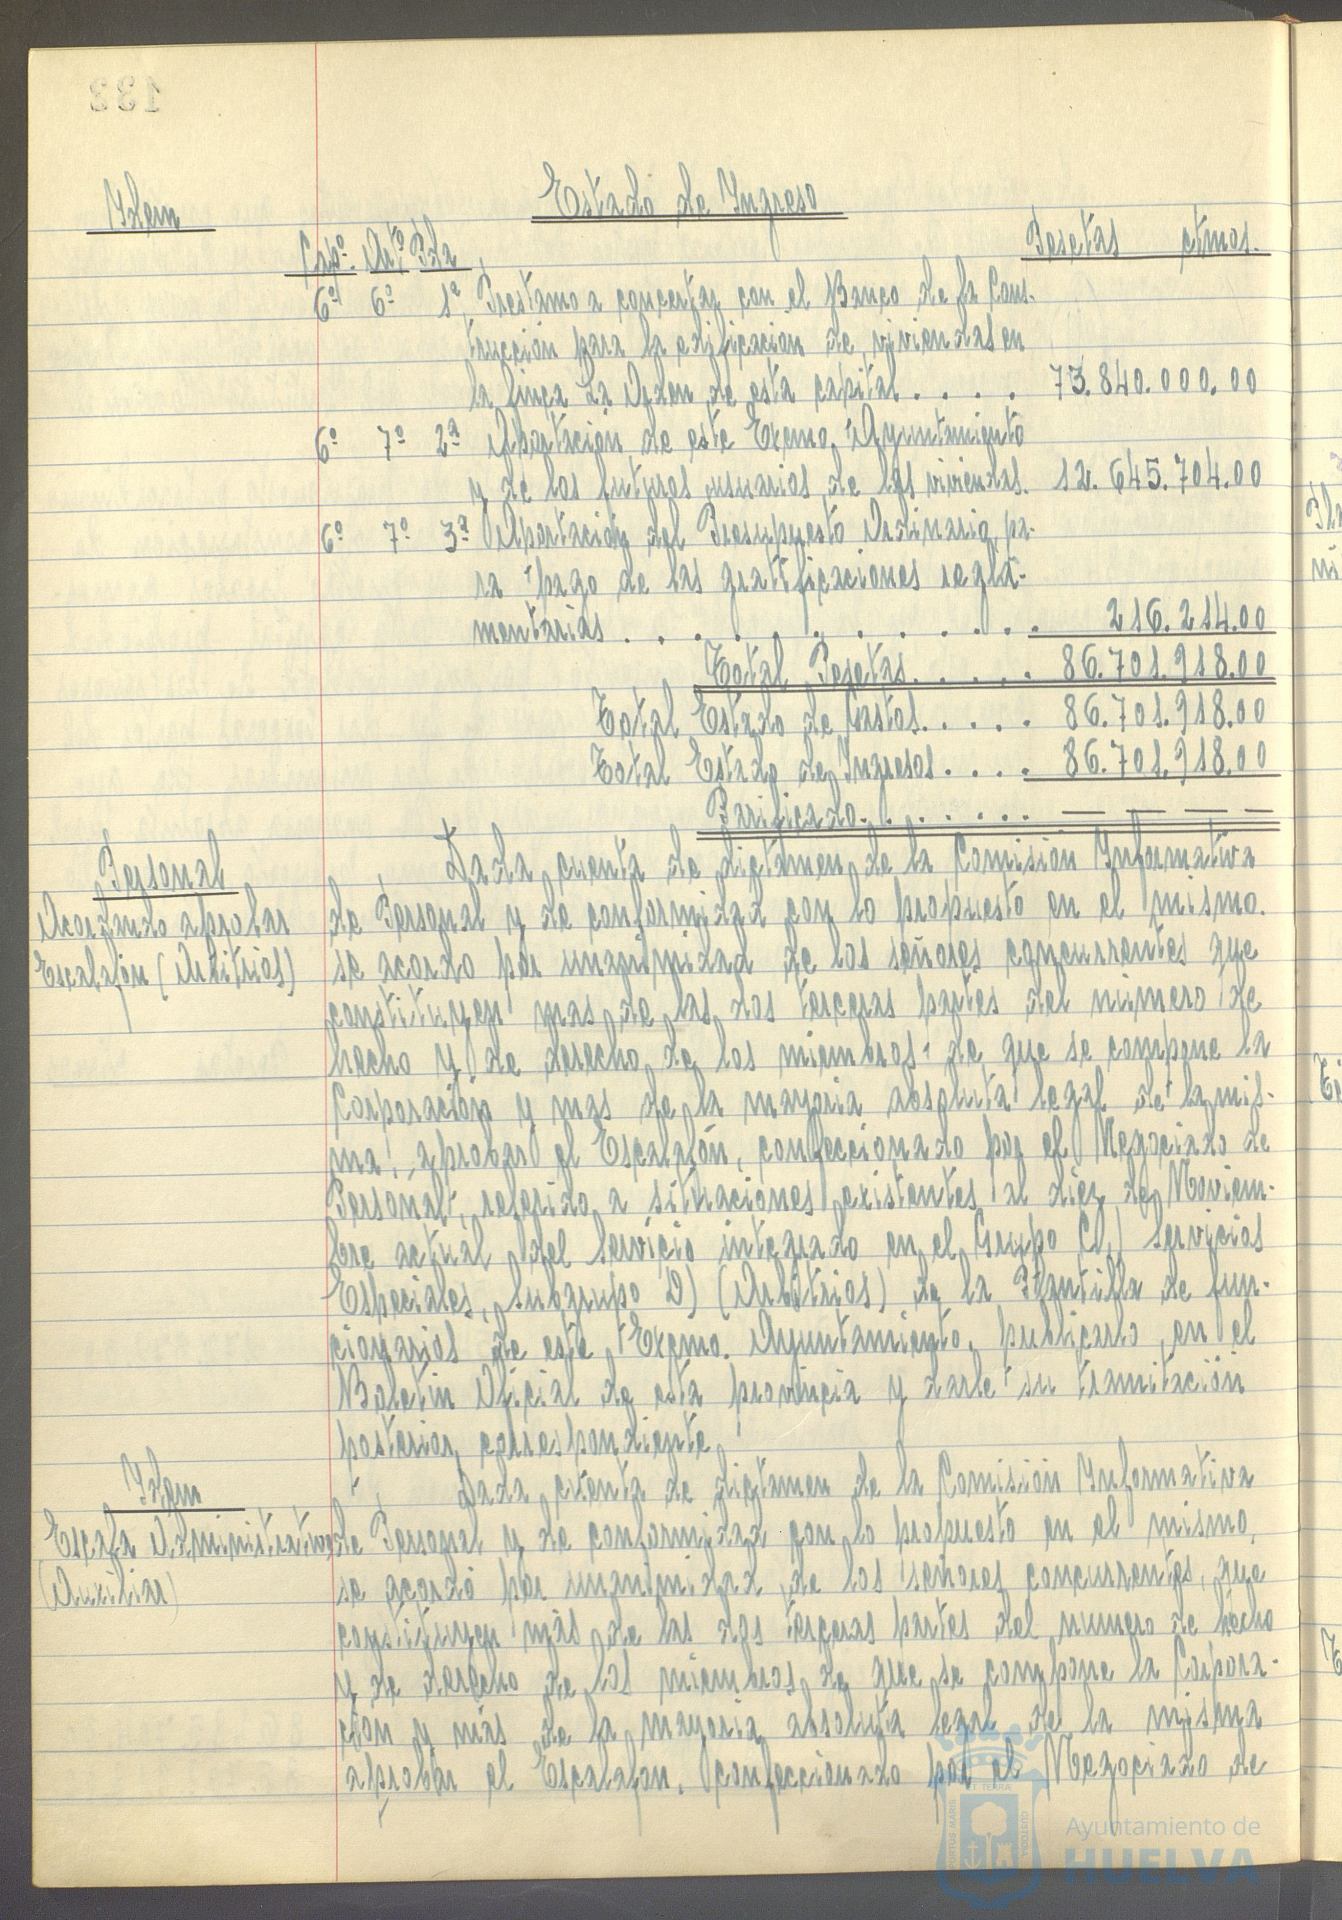 Idem
Estado de Ingreso
Capº. Artº Pda
Pesetas ctmos.
6º 6º 1ª Prestamo a concertar con el Banco de la Cons-
trucción para la edificacion de viviendas en
la finca La Orden de esta capital . . . . 73.840.000.00
6º 7º 2ª Aportación de este Excmo. Ayuntamiento
y de los futuros usuarios de las viviendas. 12.645.704.00
6º 7º 3ª Aportación del Presupuesto Ordinario pa-
ra pago de las gratificaciones regla-
mentarias . . . . . . . . . . . 216.214.00
Total Pesetas. . . . . 86.701.918.00
Total Estado de Gastos. . . . . 86.701.918.00
Total Estado de Ingresos . . . . 86.701.918.00
Parificado. . . . . . . . — — — —
Personal
Acordando aprobar
Escalafón (Arbitrios)
Dada cuenta de dictamen de la Comisión Informativa
de Personal y de conformidad con lo propuesto en el mismo.
se acordo por unanimidad de los señores concurrentes que
constituyen mas de las dos terceras partes del número de
hecho y de derecho de los miembros de que se compone la
Corporación y mas de la mayoria absoluta legal de la mis-
ma, aprobar el Escalafón, confeccionado por el Negociado de
Personal, referido a situaciones existentes al diez de Noviem-
bre actual del Servicio integrado en el Grupo C) Servicios
Especiales, Subgrupo D) (Arbitrios) de la Plantilla de fun-
cionarios de este Excmo. Ayuntamiento, publicarlo en el
Boletin Oficial de esta provincia y darle su tramitación
posterior correspondiente
Idem
Escala Administrativa
(Auxiliar)
Dada cuenta de dictamen de la Comisión Informativa
de Personal y de conformidad con lo propuesto en el mismo,
se acordó por unanimidad de los señores concurrentes, que
constituyen más de las dos terceras partes del numero de hecho
y de derecho de los miembros de que se compone la Corpora-
cion y más de la mayoria absoluta legal de la misma
aprobar el Escalafon, confeccionado por el Negociado de
Ayuntamiento de
HUELVA